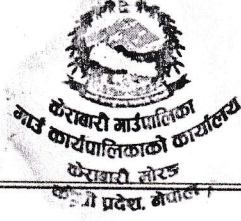 केराबारी गाउँपालिका
गाउँ कार्यपालिकाको कार्यालय
केराबारी मोरङ
प्रदेश, नेपाल ।